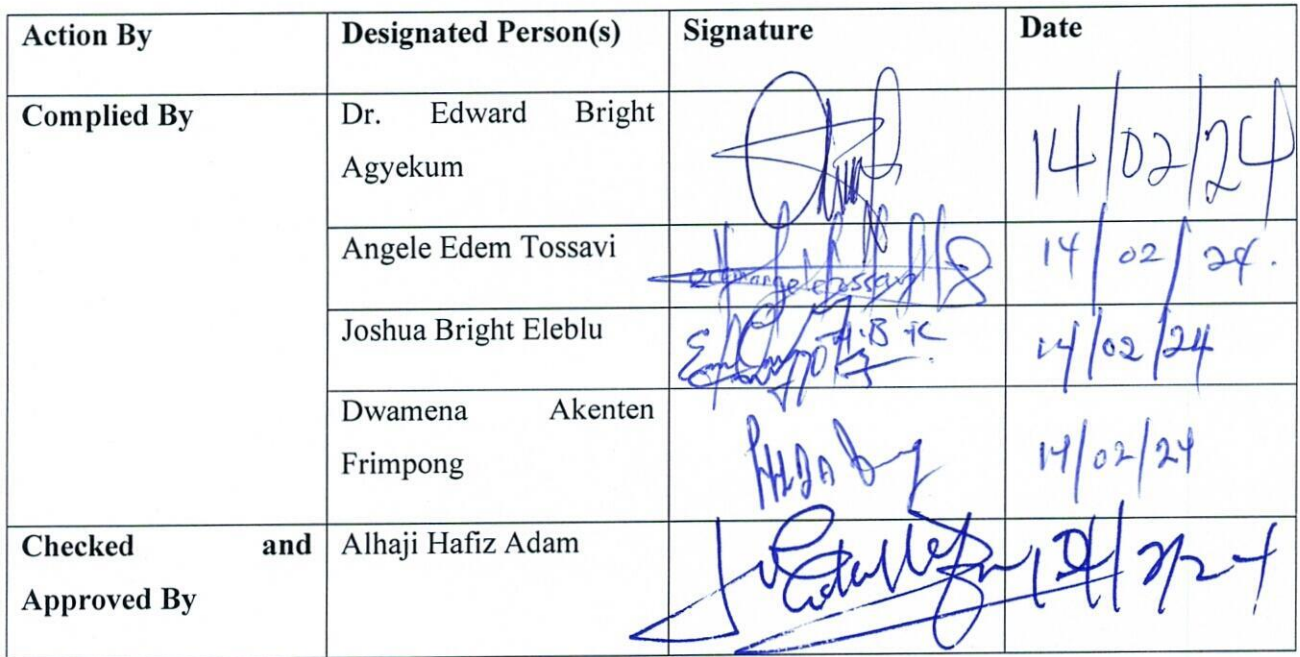 Action By Designated Person(s) Signature Date
Complied By Dr. Edward Bright Agyekum 14/02/24
Angele Edem Tossavi 14/02/24.
Joshua Bright Eleblu 14/02/24
Dwamena Akenten Frimpong 14/02/24
Checked and Approved By Alhaji Hafiz Adam